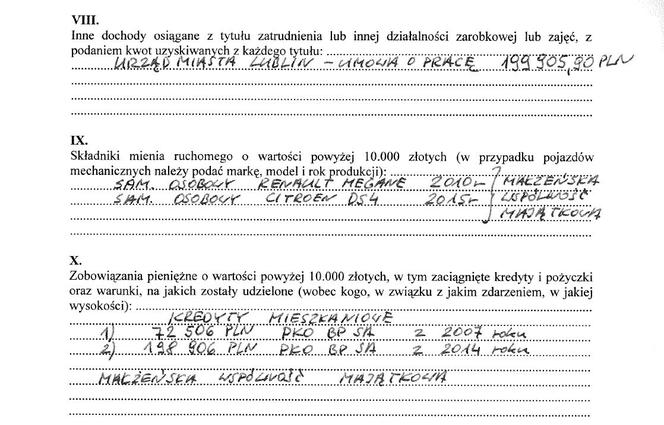 VIII.
Inne dochody osiągane z tytułu zatrudnienia lub innej działalności zarobkowej lub zajęć, z
podaniem kwot uzyskiwanych z każdego tytułu:
URZĄD MIASTA LUBLIN – UMOWA O PRACĘ 199 905,90 PLN
IX.
Składniki mienia ruchomego o wartości powyżej 10.000 złotych (w przypadku pojazdów
mechanicznych należy podać markę, model i rok produkcji):
SAM. OSOBOWY RENAULT MEGANE 2010r MAŁŻEŃSKA
SAM. OSOBOWY CITROEN DS4 2015r WSPÓLNOŚĆ
MAJĄTKOWA
X.
Zobowiązania pieniężne o wartości powyżej 10.000 złotych, w tym zaciągnięte kredyty i pożyczki
oraz warunki, na jakich zostały udzielone (wobec kogo, w związku z jakim zdarzeniem, w jakiej
wysokości):
KREDYTY MIESZKANIOWE
1) 72 506 PLN PKO BP SA z 2007 roku
2) 198 906 PLN PKO BP SA z 2014 roku
MAŁŻEŃSKA WSPÓLNOŚĆ MAJĄTKOWA